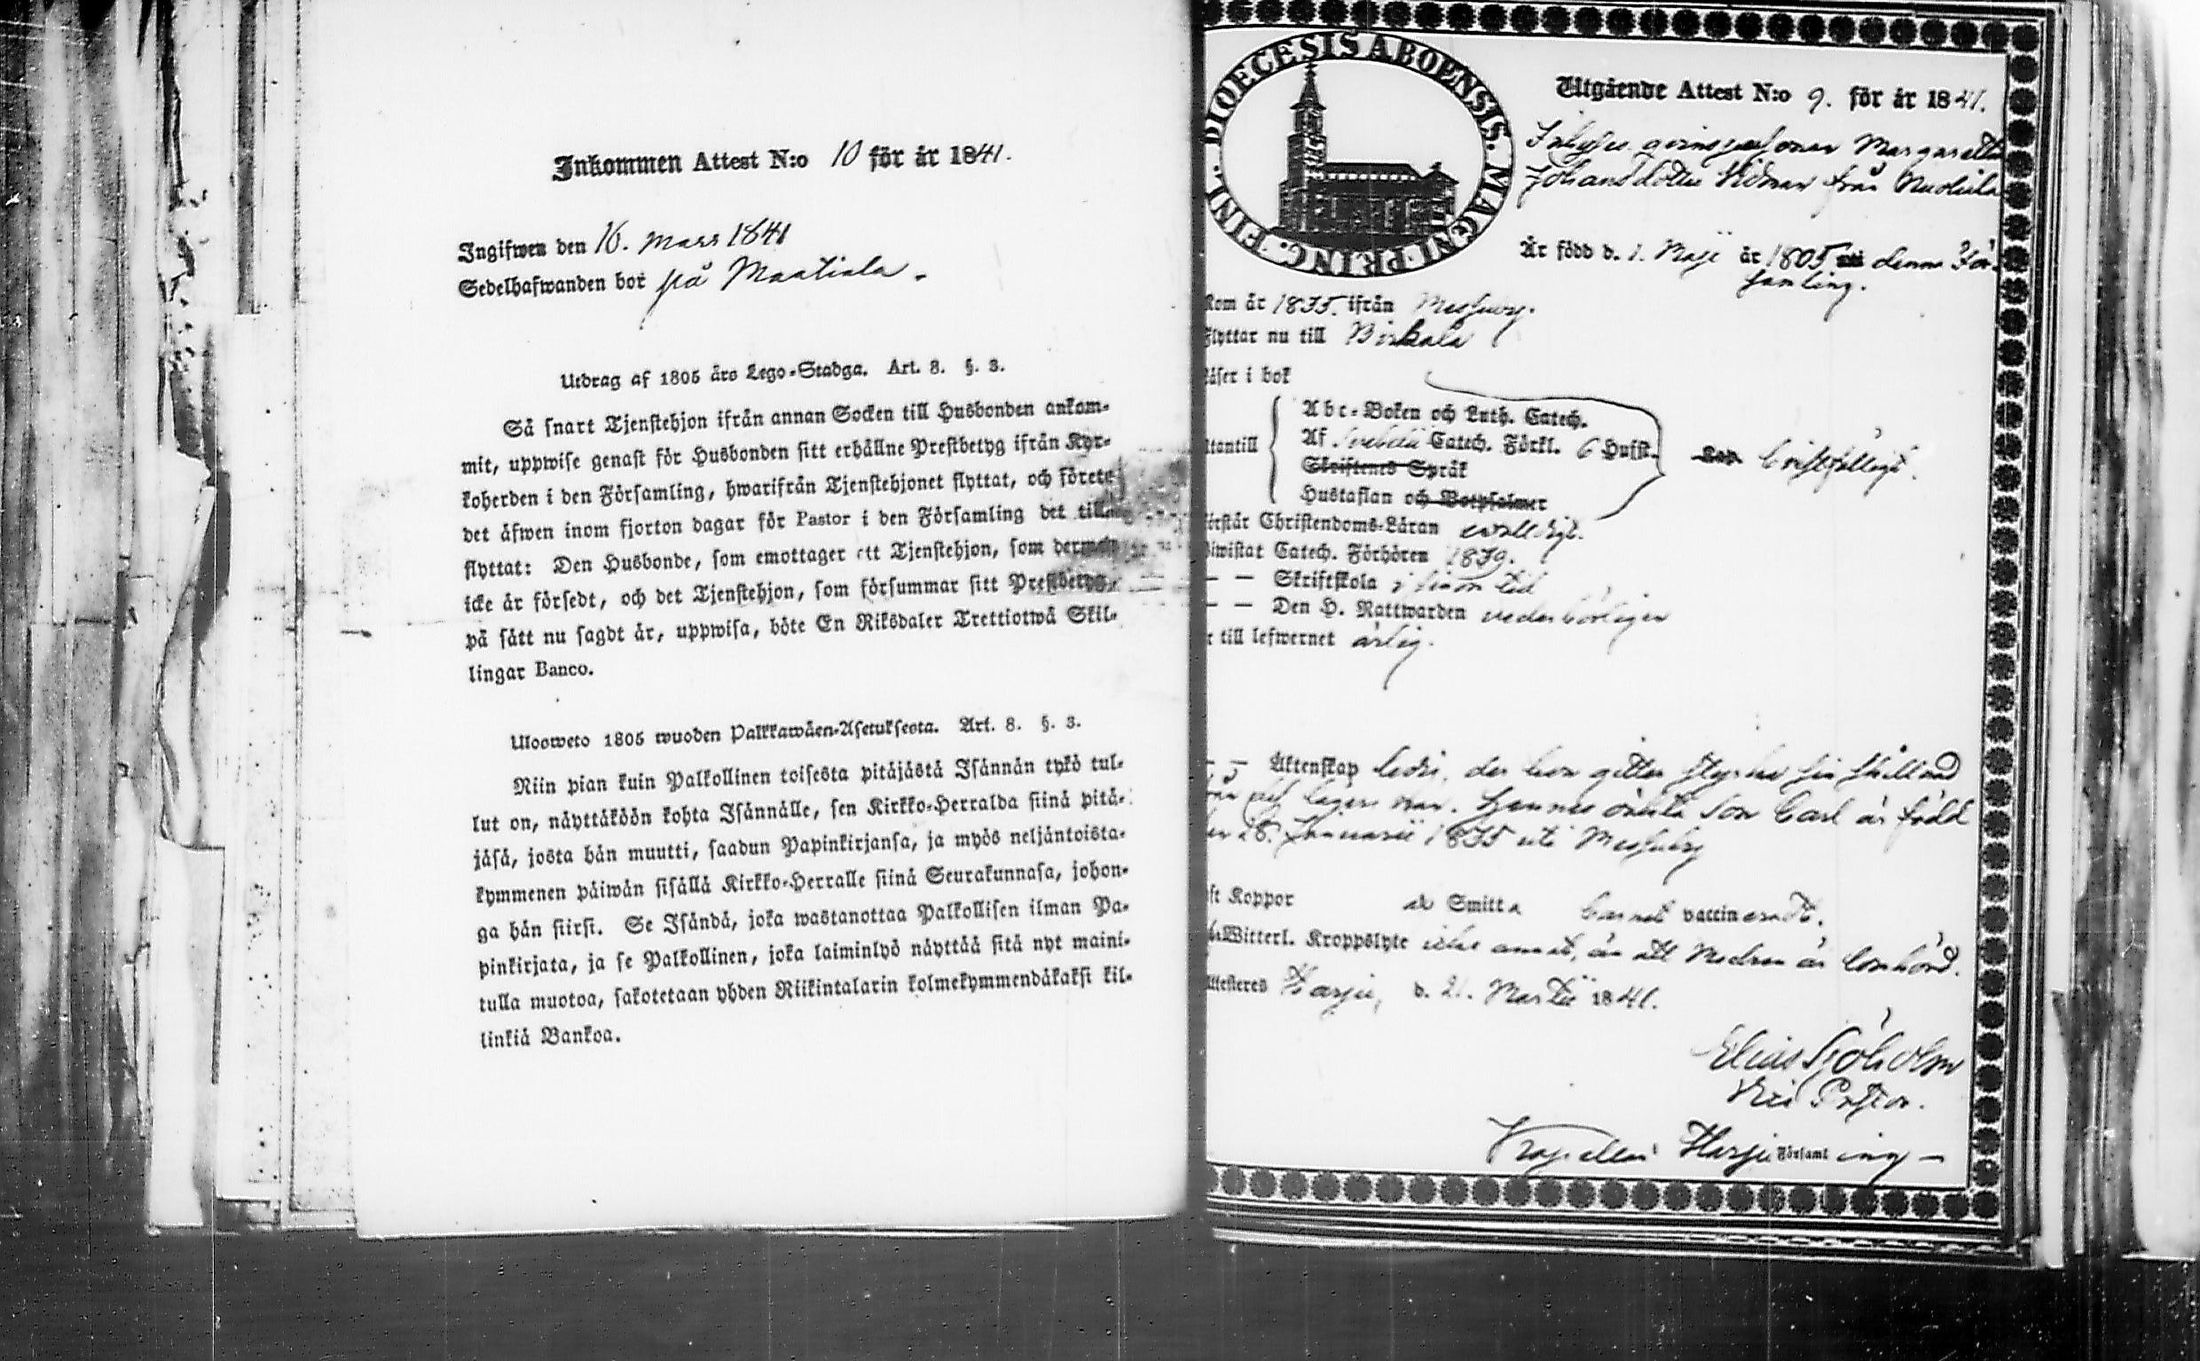 Inkommen Attest N:o 10 för år 1841.
Ingifwen den 16. Mars 1841
Sedelhafwanden bor på Maatiala.
Utdrag af 1805 års Lego-Stadga. Art. 8. §. 3.
Så snart Tjenstehjon ifrån annan Socken till Husbonden ankom-
mit, uppwise genast för Husbonden sitt erhållne Prestbetyg ifrån Kyr-
koherden i den Församling, hwarifrån Tjenstehjonet flyttat, och förete
det äfwen inom fjorton dagar för Pastor i den Församling det till-
flyttat: Den Husbonde, som emottager ett Tjenstehjon, som dermed
icke är försedt, och det Tjenstehjon, som försummar sitt Prestbetyg,
på sätt nu sagdt är, uppwisa, böte En Riksdaler Trettiotwå Skil-
lingar Banco.
Ulosweto 1805 wuoden Palkkawäen-Asetuksesta. Art. 8. §. 3.
Niin pian kuin Palkollinen toisesta pitäjästä Isännän tykö tul-
lut on, näyttäköön kohta Isännälle, sen Kirkko-Herralda siinä pitä-
jäsä, josta hän muutti, saadun Papinkirjansa, ja myös neljäntoista-
kymmenen päiwän sisällä Kirkko-Herralle siinä Seurakunnasa, johon-
ga hän siirsi. Se Isändä, joka wastanottaa Palkollisen ilman Pa-
pinkirjata, ja se Palkollinen, joka laiminlyö näyttää sitä nyt maini-
tulla muotoa, sakotetaan yhden Riikintalarin kolmekymmendäkaksi kil-
linkiä Bankoa.
FINL. DIOECESIS ABOENSIS. MAGNI PRINC.
Utgående Attest N:o 9. för år 1841.
Margaretha
Johansdotter från
Är född d. 1. Maji år 1805 denna För-
samling.
Kom år 1835. ifrån Messuby.
Flyttar nu till Birkala
Läser i bok
Abc-Boken och Luth. Catech.
Utantill Af Svebelii Catech. Förkl. 6 Hufst.
Skriftenes Språk
Hustaflan och Botpsalmer
Christfälligt.
Förstår Christendoms-Läran
Biwistat Catech. Förhören 1839.
— — Skriftskola i sinom tid
— — Den H. Nattwarden vederbörligen
är till lefwernet ärlig.
— — Äktenskap ledig, der hon gitter styrka sin skillnad
från lägersman. Hennes oäkta Son Carl är född
den 28. Januarii 1835 uti Messuby
Koppor af Smitta barnet vaccineradt.
Witterl. Kroppslyte icke annat, än att Modren är lomhörd.
Attesteres Harju, d. 21. Martii 1841.
Elias Sjöholm
Vice Pastor.
Kapellan i Harju Församling —